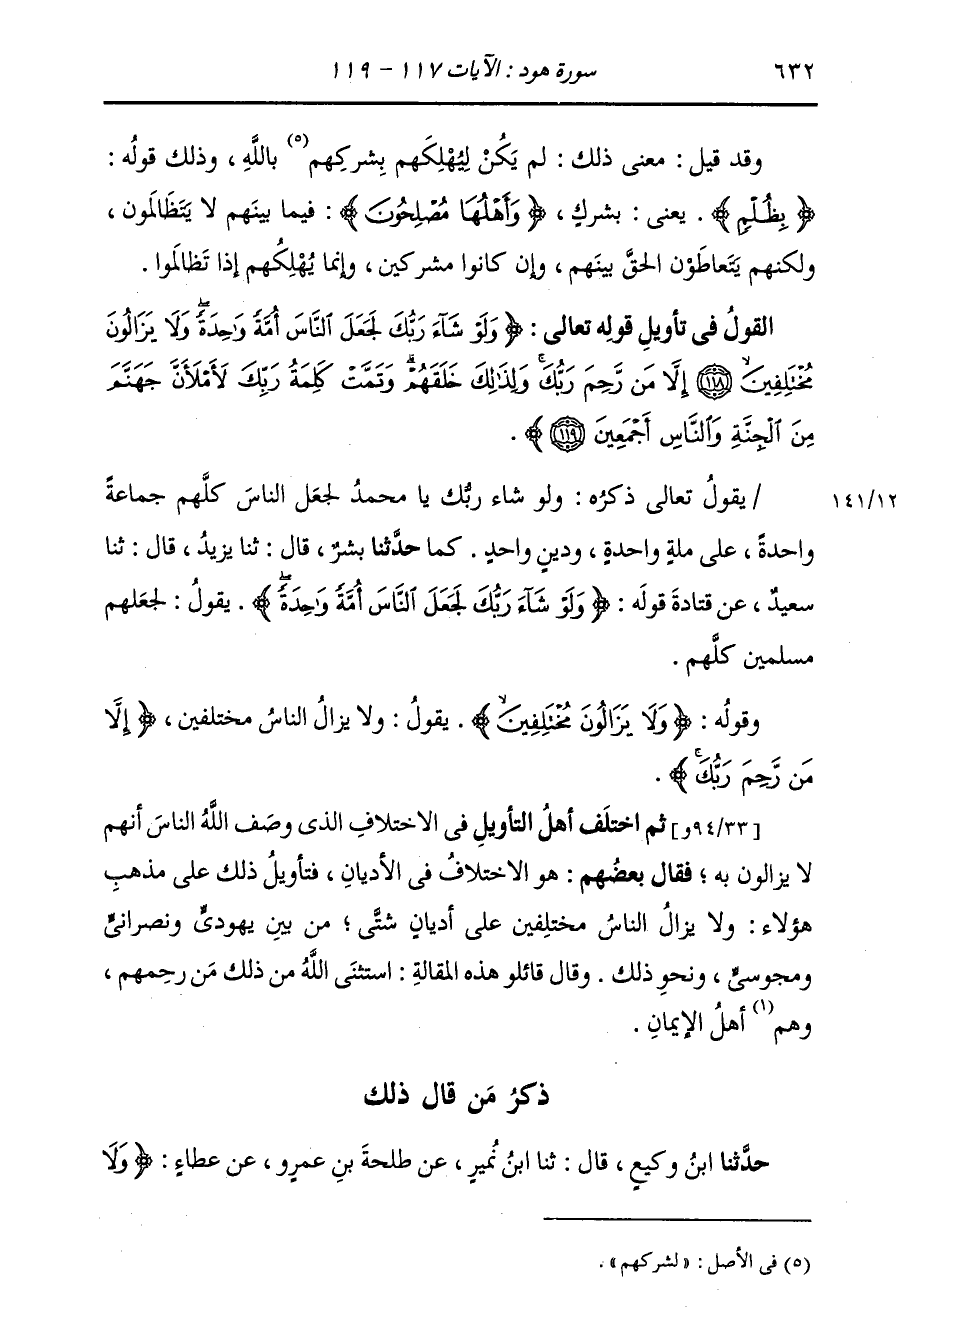 ٦٣٢ سورة هود : الآيات ١١٧ - ١١٩
وقد قيل : معنى ذلك : لم يَكُنْ لِيُهْلِكَهم بِشركِهم(٥) باللَّهِ ، وذلك قولُه :
﴿ بِظُلْمٍ ﴾ . يعنى : بشركٍ ، ﴿ وَأَهْلُهَا مُصْلِحُونَ ﴾ : فيما بينَهم لا يَتَظَالَمون ،
ولكنهم يَتَعاطَوْن الحقَّ بينَهم ، وإن كانوا مشركين ، وإنما يُهْلِكُهم إذا تَظالَموا .
القولُ فى تأويلِ قولِه تعالى : ﴿ وَلَوْ شَآءَ رَبُّكَ لَجَعَلَ ٱلنَّاسَ أُمَّةً وَٰحِدَةً ۖ وَلَا يَزَالُونَ
مُخْتَلِفِينَ ۙ ١١٨ إِلَّا مَن رَّحِمَ رَبُّكَ ۚ وَلِذَٰلِكَ خَلَقَهُمْ ۗ وَتَمَّتْ كَلِمَةُ رَبِّكَ لَأَمْلَأَنَّ جَهَنَّمَ
مِنَ ٱلْجِنَّةِ وَٱلنَّاسِ أَجْمَعِينَ ١١٩ ﴾ .
١٤١/١٢ / يقولُ تعالى ذكرُه : ولو شاء ربُّك يا محمدُ لجعَل الناسَ كلَّهم جماعةً
واحدةً ، على ملةٍ واحدةٍ ، ودينٍ واحدٍ . كما حدَّثنا بشرٌ ، قال : ثنا يزيدُ ، قال : ثنا
سعيدٌ ، عن قتادةَ قولَه : ﴿ وَلَوْ شَآءَ رَبُّكَ لَجَعَلَ ٱلنَّاسَ أُمَّةً وَٰحِدَةً ۖ ﴾ . يقولُ : لجعَلهم
مسلمين كلَّهم .
وقولُه : ﴿ وَلَا يَزَالُونَ مُخْتَلِفِينَ ۙ ﴾ . يقولُ : ولا يزالُ الناسُ مختلفين ، ﴿ إِلَّا
مَن رَّحِمَ رَبُّكَ ۚ ﴾ .
[٩٤/٣٣و] ثم اختلَف أهلُ التأويلِ فى الاختلافِ الذى وصَف اللَّهُ الناسَ أنهم
لا يزالون به ؛ فقال بعضُهم : هو الاختلافُ فى الأديانِ ، فتأويلُ ذلك على مذهبِ
هؤلاء : ولا يزالُ الناسُ مختلِفين على أديانٍ شتَّى ؛ من بينِ يهودىٍّ ونصرانىٍّ
ومجوسىٍّ ، ونحوِ ذلك . وقال قائلو هذه المقالةِ : استثنَى اللَّهُ من ذلك مَن رحِمهم ،
وهم(١) أهلُ الإيمانِ .
ذكرُ مَن قال ذلك
حدَّثنا ابنُ وكيعٍ ، قال : ثنا ابنُ نُميرٍ ، عن طلحةَ بنِ عمرٍو ، عن عطاءٍ : ﴿ وَلَا
(٥) فى الأصل : «لشركهم» .